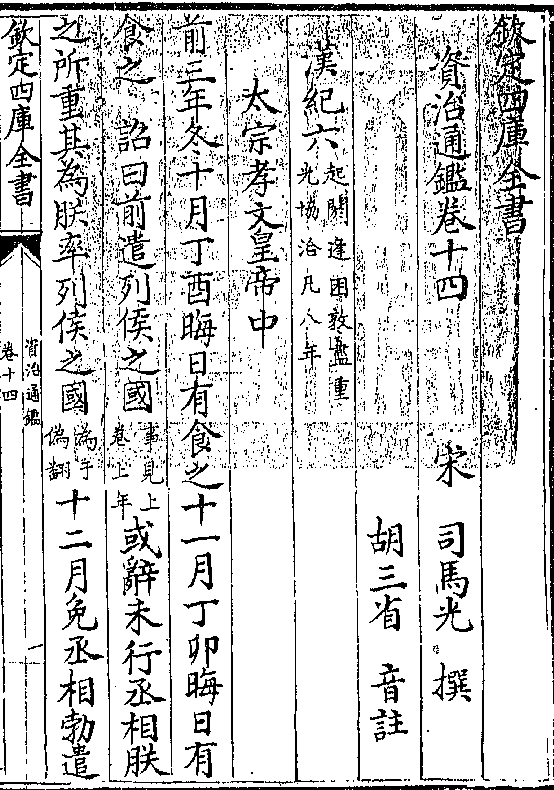 欽定四庫全書
資治通鑑卷十四
宋 司馬光 撰
胡三省 音註
漢紀六起閼逢困敦盡重
光協洽凡八年
太宗孝文皇帝中
前三年冬十月丁酉晦日有食之十一月丁卯晦日有
食之 詔曰前遣列侯之國事見上
卷上年或辭未行丞相朕
之所重其為朕率列侯之國為于
偽翻十二月免丞相勃遣
欽定四庫全書
資治通鑑
卷十四